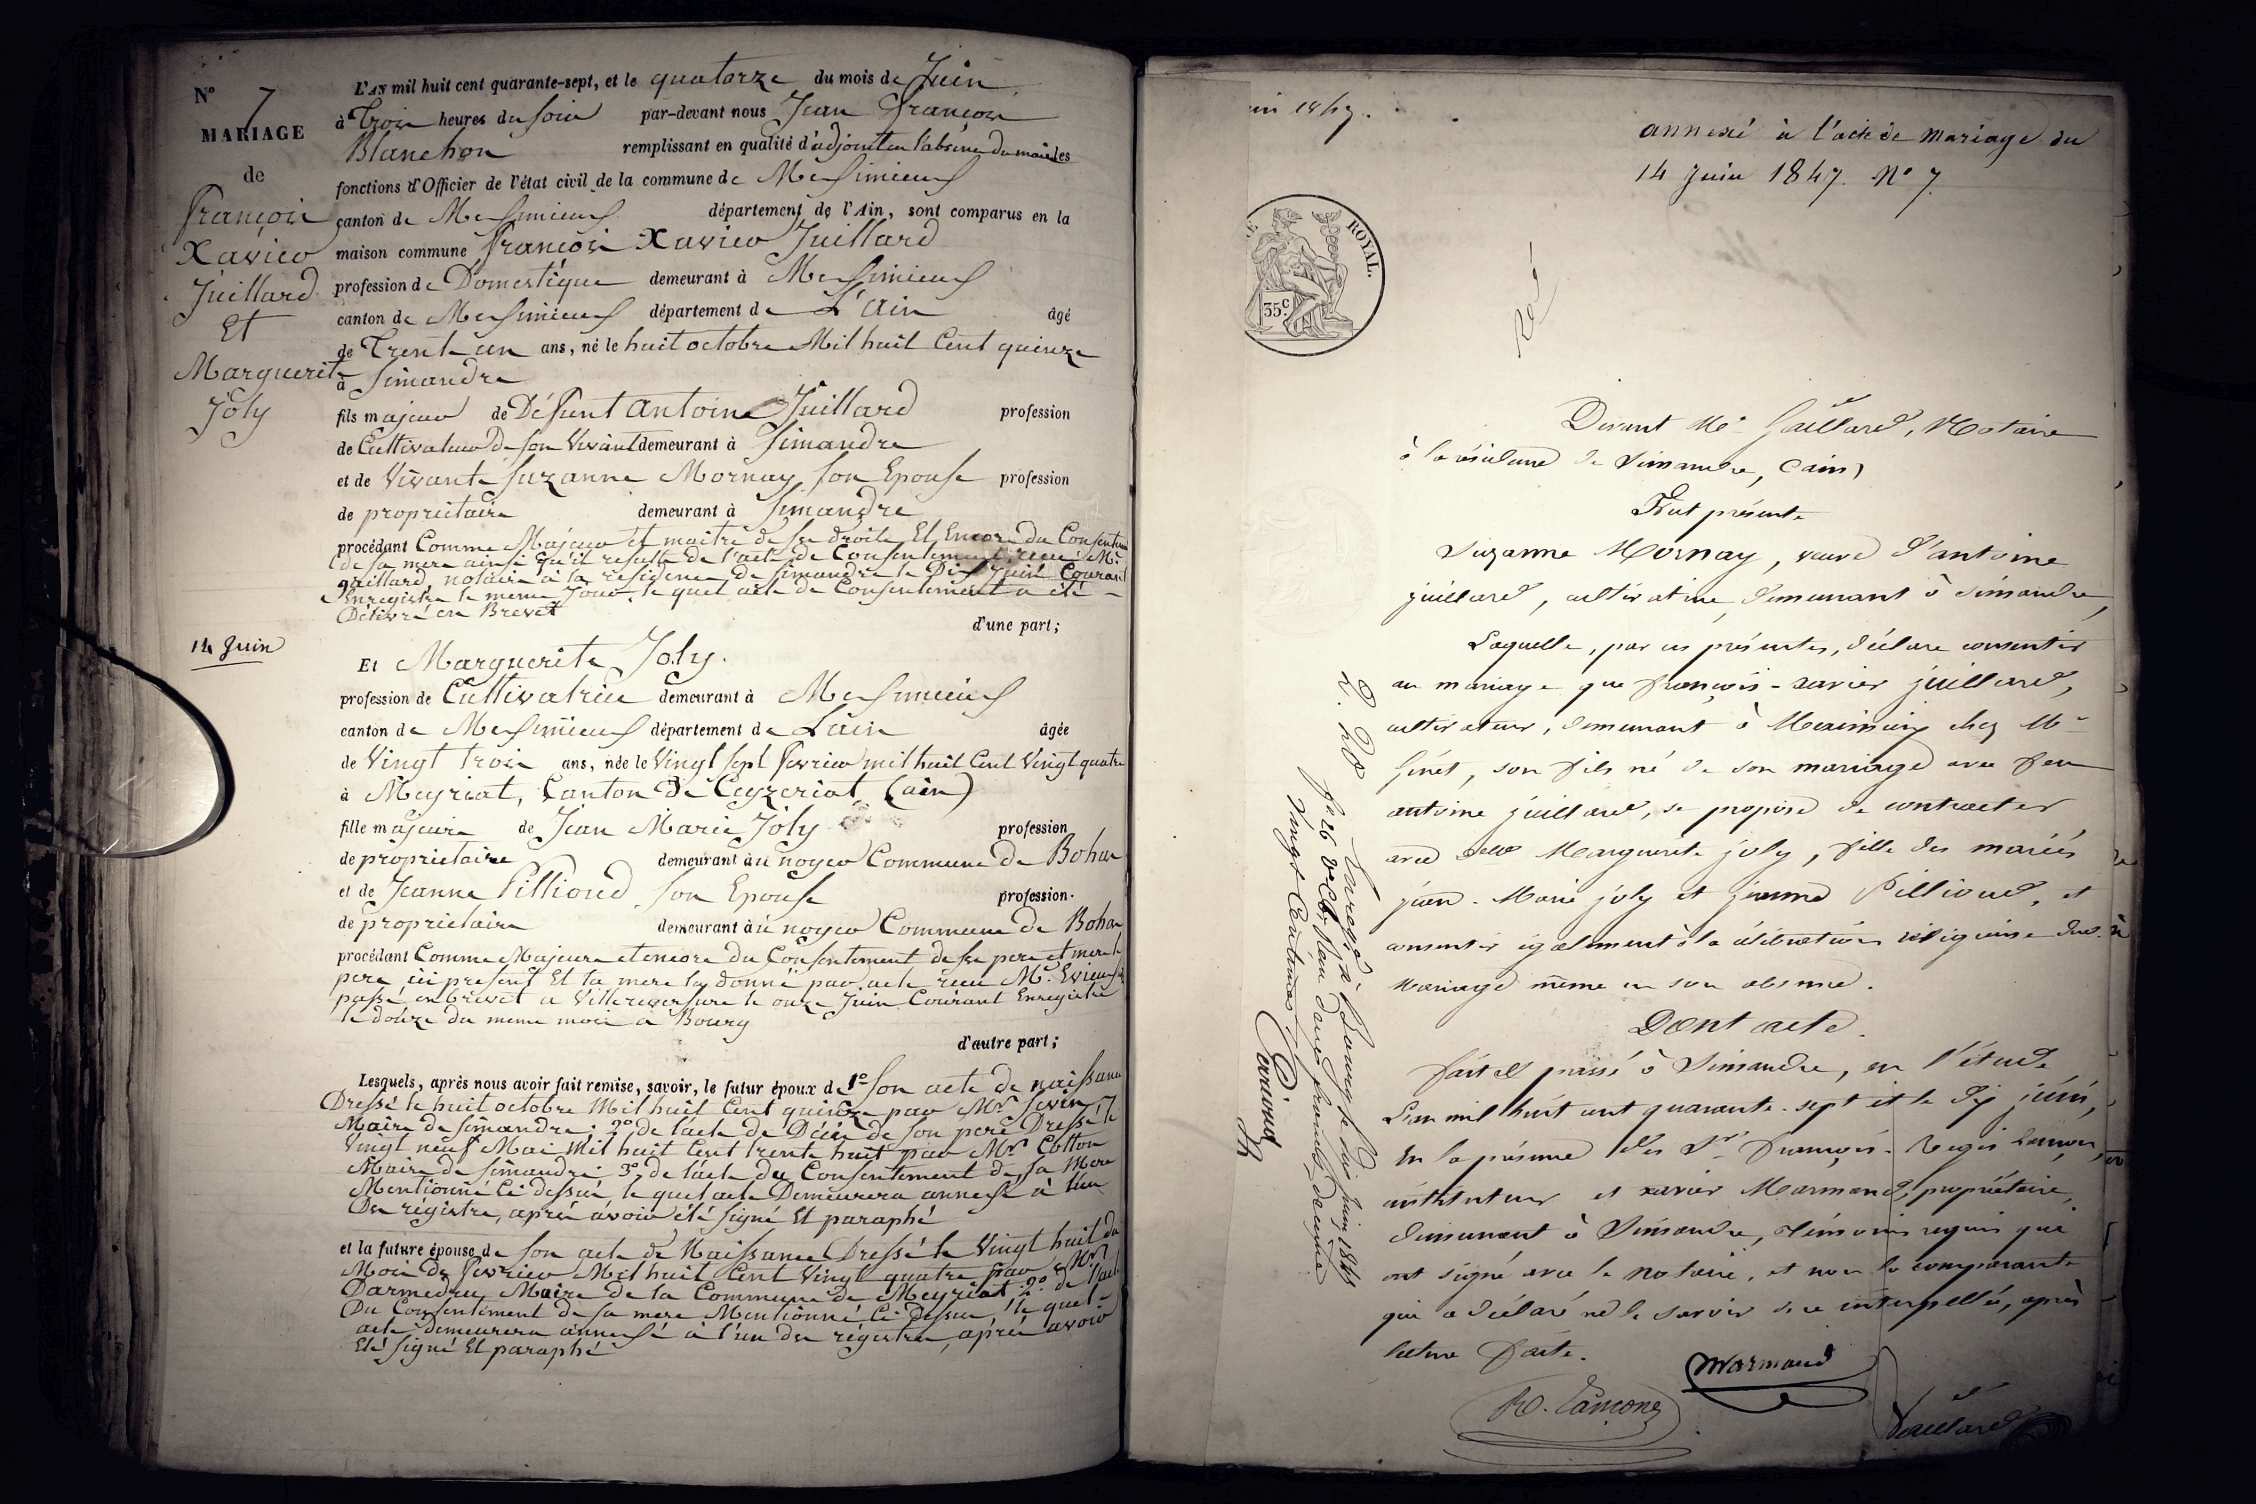 N° 7
MARIAGE
de
François
Xavier
Juillard
Et
Marguerite
Joly
14 Juin
L'AN mil huit cent quarante-sept, et le quatorze du mois de Juin
à Trois heures du soir par-devant nous Jean François
Blanchon remplissant en qualité d'adjoint en l'absence du maire les
fonctions d'Officier de l'état civil de la commune de Meximieux
canton de Meximieux département de l'Ain, sont comparus en la
maison commune François Xavier Juillard
profession de Domestique demeurant à Meximieux
canton de Meximieux département de L'Ain âgé
de Trente un ans, né le huit octobre Mil huit Cent quinze
à Simandre
fils majeur de Défunt Antoine Juillard profession
de Cultivateur de son Vivant demeurant à Simandre
et de Vivante Suzanne Mornay son Epouse profession
de propriétaire demeurant à Simandre
procédant Comme Majeur et maitre de ses droits Et Encore du Consentement
de sa mere ainsi qu'il resulte de l'acte de Consentement reçu Me
gaillard, notaire à la residence de Simandre le Dix Juin Courant
Enregistré le meme Jour, le quel acte de Consentement a été
Délivré en Brevet
d'une part;
Et Marguerite Joly.
profession de Cultivatrice demeurant à Meximieux
canton de Meximieux département de L'ain âgée
de Vingt trois ans, née le Vingt sept fevrier mil huit Cent Vingt quatre
à Meyriat, Canton De Ceyzeriat (ain)
fille majeure de Jean Marie Joly profession
de propriétaire demeurant à noyer Commune de Bohas
et de Jeanne Pillioud son Epouse profession.
de propriétaire demeurant à noyer Commune de Bohas
procédant Comme Majeure et encore du Consentement de ses pere et mere le
pere ici present Et la mere l'a donné par acte reçu Me
passé en brevet a Villereversure le onze Juin Courant Enregistré
le douze du meme mois à Bourg
d'autre part;
Lesquels, après nous avoir fait remise, savoir, le futur époux de 1° son acte de naissance
Dressé le huit octobre Mil huit Cent quinze par Mr
Maire de Simandre; 2° de l'acte de Décès de son pere Dressé le
Vingt neuf Mai Mil huit Cent trente huit par Mr Cotton
Maire de Simandre: 3° de l'acte du Consentement de sa Mere
Mentionné Ci dessus, le quel acte Demeurera annexé à l'un
Des régistres, après avoir été signé Et paraphé
et la future épouse de son acte de Naissance Dressé le Vingt huit du
Mois de fevrier Mil huit Cent Vingt quatre par Mr
Maire de la Commune de Meyriat 2° de l'acte
Du Consentement de sa mere Mentionné Ci Dessus, le quel
acte demeurera annexé à l'un des régistres, après avoir
Eté signé Et paraphé
annexé à l'acte de mariage du
14 Juin 1847. N° 7.
ROYAL.
35 c.
Devant Me Gaillard, Notaire
à la résidence de Simandre, (ain)
Fut présente
Suzanne Mornay, veuve d'antoine
juillard, cultivatrice, demeurant à Simandre,
Laquelle, par ces présentes, déclare consentir
au mariage que françois-xavier juillard,
cultivateur, demeurant à Meximieux chez Mr
, son fils né de son mariage avec feu
antoine juillard, se propose de contracter
avec delle Marguerite joly, fille des mariés
jean-Marie joly et jeanne Pillioud, et
consentir également à la célébration religieuse dud.
Mariage même en son absence.
Dont acte.
fait et passé à Simandre, en l'étude
L'an mil huit cent quarante-sept et le dix juin,
En la présence des Srs François-Regis Lançon,
instituteur et xavier Marmand, propriétaire,
demeurant à Simandre, témoins requis qui
ont signé avec le notaire, et non la comparante
qui a déclaré ne le savoir de ce interpellée, après
lecture faite.
Marmand
R. Lançon
Gaillard
Enregistré à Bourg le dix Juin 1847